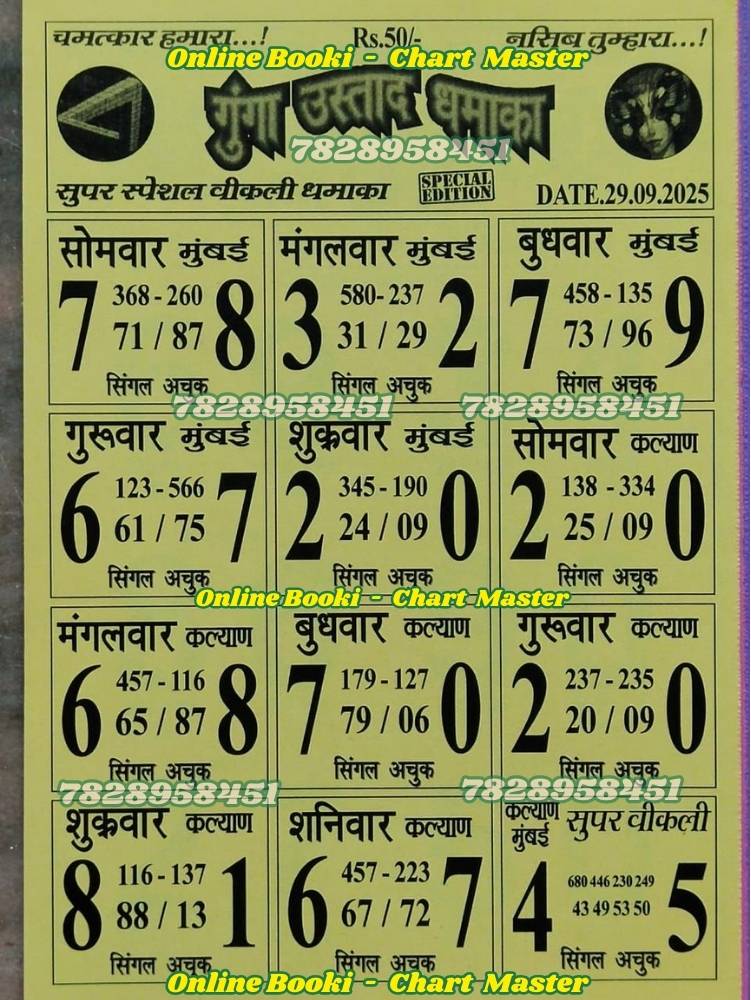 चमत्कार हमारा...! Rs.50/- नसिब तुम्हारा...!
Online Booki - Chart Master
गुंगा उस्ताद धमाका
7828958451
सुपर स्पेशल वीकली धमाका SPECIAL EDITION DATE.29.09.2025
सोमवार मुंबई
7 368-260 8
71 / 87
सिंगल अचुक
मंगलवार मुंबई
3 580-237 2
31 / 29
सिंगल अचुक
बुधवार मुंबई
7 458-135 9
73 / 96
सिंगल अचुक
7828958451 7828958451
गुरूवार मुंबई
6 123-566 7
61 / 75
सिंगल अचुक
शुक्रवार मुंबई
2 345-190 0
24 / 09
सिंगल अचुक
सोमवार कल्याण
2 138-334 0
25 / 09
सिंगल अचुक
Online Booki - Chart Master
मंगलवार कल्याण
6 457-116 8
65 / 87
सिंगल अचुक
बुधवार कल्याण
7 179-127 0
79 / 06
सिंगल अचुक
गुरूवार कल्याण
2 237-235 0
20 / 09
सिंगल अचुक
7828958451 7828958451
शुक्रवार कल्याण
8 116-137 1
88 / 13
सिंगल अचुक
शनिवार कल्याण
6 457-223 7
67 / 72
सिंगल अचुक
कल्याण मुंबई सुपर वीकली
4 680 446 230 249 5
43 49 53 50
सिंगल अचुक
Online Booki - Chart Master